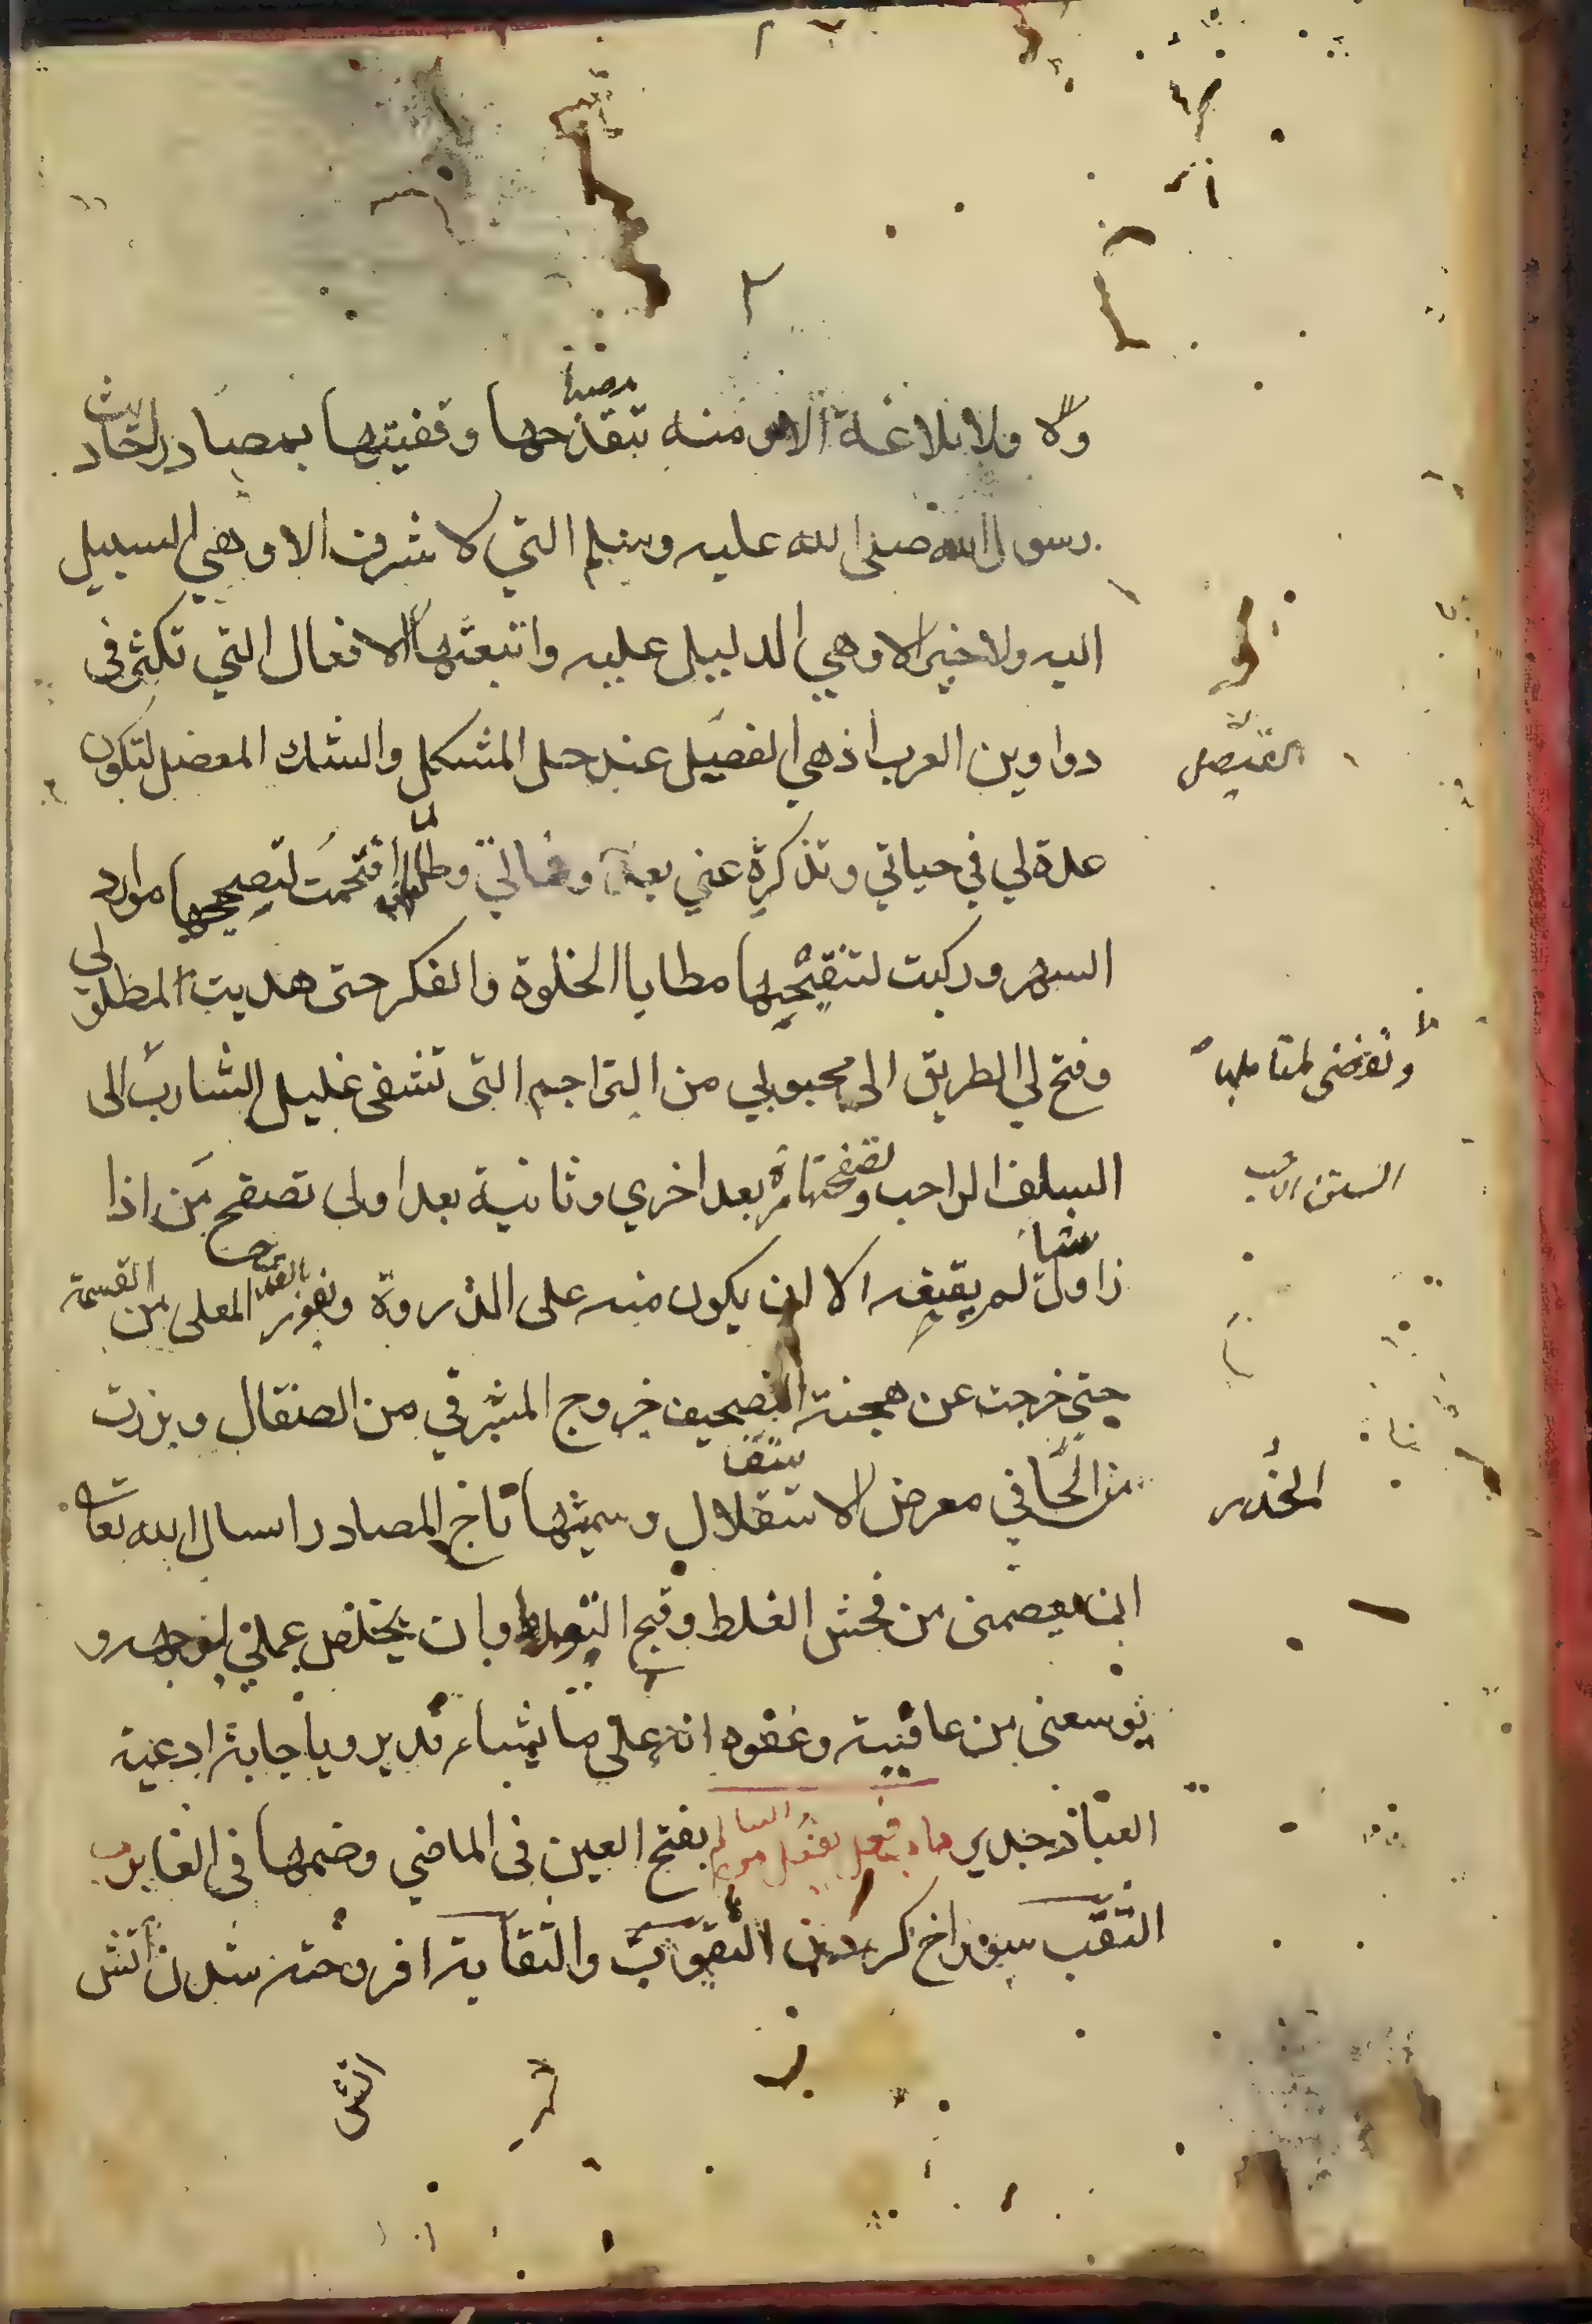 ولا بلاغة الا ومنه تقدحها وقفيتها بمصادر احاديث
رسول الله صلى الله عليه وسلم التي لا شرف الا وهي السبيل
اليه ولا خير الا وهي الدليل عليه واتبعتها الافعال التي تكثر في
دواوين العرب اذ هي الفصيل عند حل المشكل والشك المعضل لتكون
الفيصل
عدة لي في حياتي وتذكرة عني بعد وفاتي وطالما اقتحمت لتصحيحها موارد
السهر وركبت لتنقيحها مطايا الخلوة والفكر حتى هديت لمطلوبي
وفتح لي الطريق الى محبوبي من التراجم التي تشفي غليل الشارب الى
السلف الراحب وتصفحتها مرة بعد اخري وثانية بعد اولى تصفح من اذا
زاول شيا لم يقنعه الا ان يكون منه على الذروة ويفوز بالقدح المعلى من القسمة
حتى خرجت عن هجنة التصحيف خروج المشرفي من الصقال وبرزت
من في معرض الاستقلال وسميتها تاج المصادر اسال الله تعالى
الخدر
ان يعصمني من فحش الغلط وقبح وان يخلص عملي لوجهه و
يوسعني من عافيته وعفوه انه على ما يشاء قدير وباجابة ادعية
العباد جدير باب فعل يفعل من السالم بفتح العين في الماضي وضمها في الغابر ب
الثقب سوراخ كردن الثقوب والثقابة افروخته شدن اتش